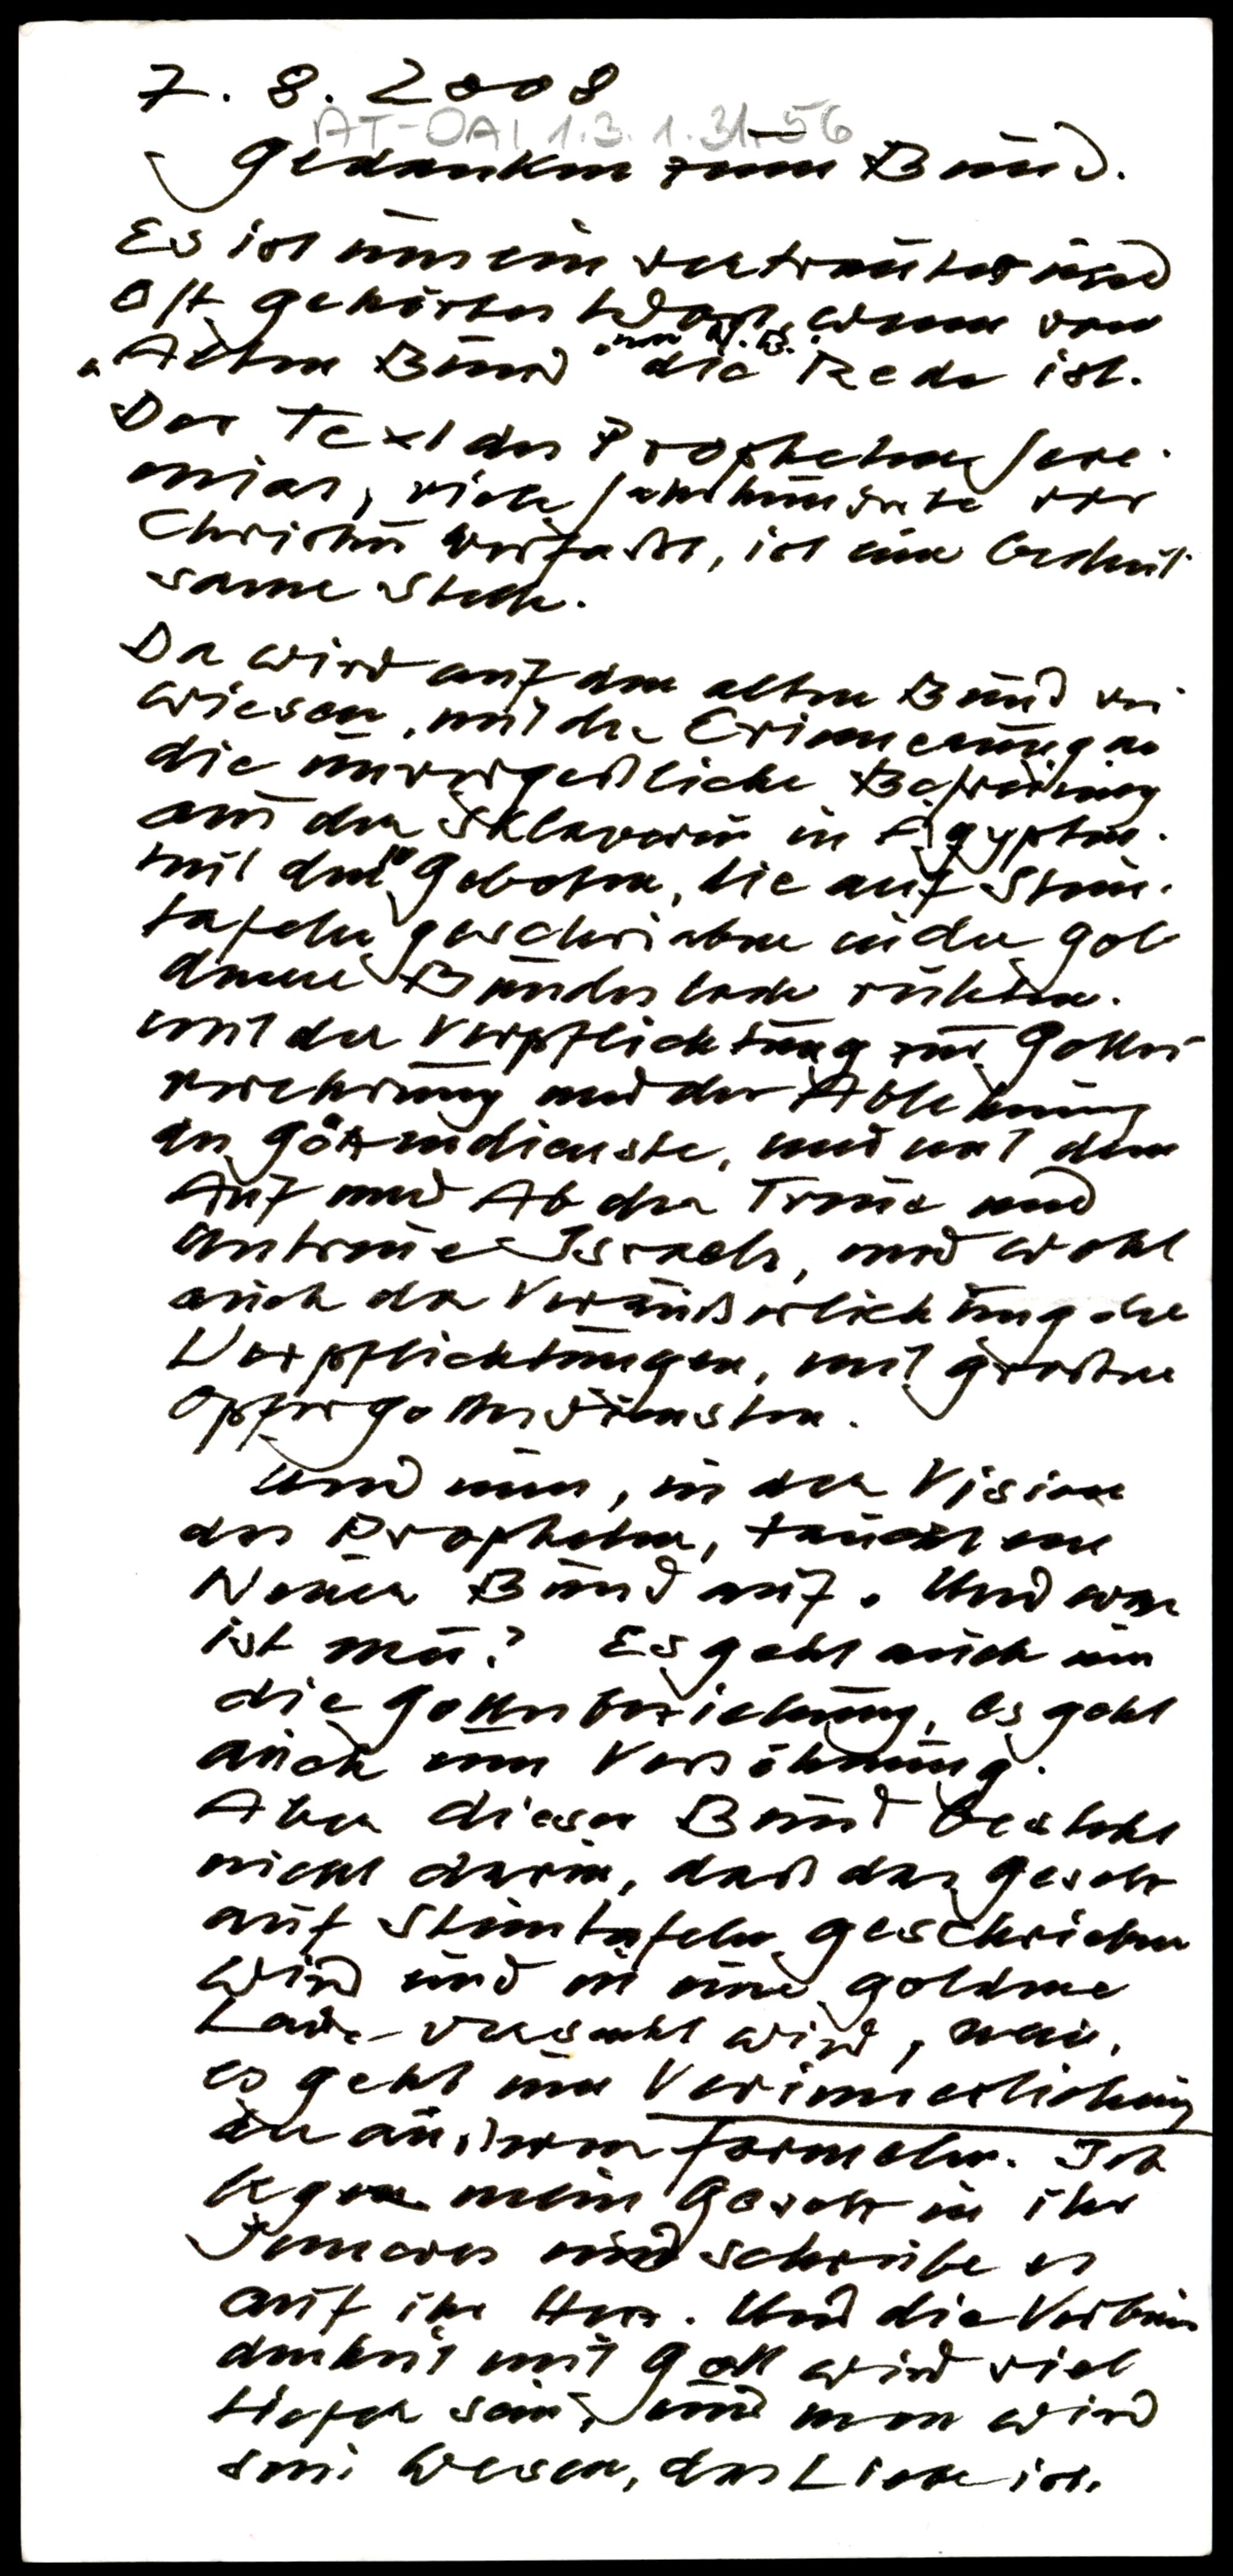 7. 8. 2008
AT-OAI 1.3.1.31.56
Gedanken zum Bund.
Es ist uns ein vertrautes und
oft gehörtes Wort, wenn vom
"Alten Bund" "vom N.B." die Rede ist.
Der Text des Propheten Jere-
mias, viele Jahrhunderte vor
Christus verfaßt, ist eine bedeut-
same Stelle.
Da wird auf den alten Bund ver-
wiesen, mit der Erinnerung an
die unvergeßliche Befreiung
aus der Sklaverei in Ägypten.
mit den 10 Geboten, die auf Stein-
tafeln geschrieben in der gol-
denen Bundeslade ruhten.
mit der Verpflichtung zur Gottes-
verehrung und der Ablehnung
der Götzendienste, und mit dem
Auf und Ab der Treue und
Untreue Israels, und wohl
auch der Veräußerlichung der
Verpflichtungen, mit großen
Opfergottesdiensten.
Und nun, in der Vision
des Propheten, taucht ein
Neuer Bund auf. Und was
ist neu? Es geht auch um
die Gottesbeziehung, es geht
auch um Versöhnung.
Aber dieser Bund besteht
nicht darin, daß das Gesetz
auf Steintafeln geschrieben
wird und in eine goldene
Lade versenkt wird, nein,
es geht um Verinnerlichung
der äußeren Formeln. Ich
lege mein Gesetz in ihr
Inneres und schreibe es
auf ihr Herz. Und die Verbun-
denheit mit Gott wird viel
tiefer sein, und man wird
sein Wesen, das Liebe ist,